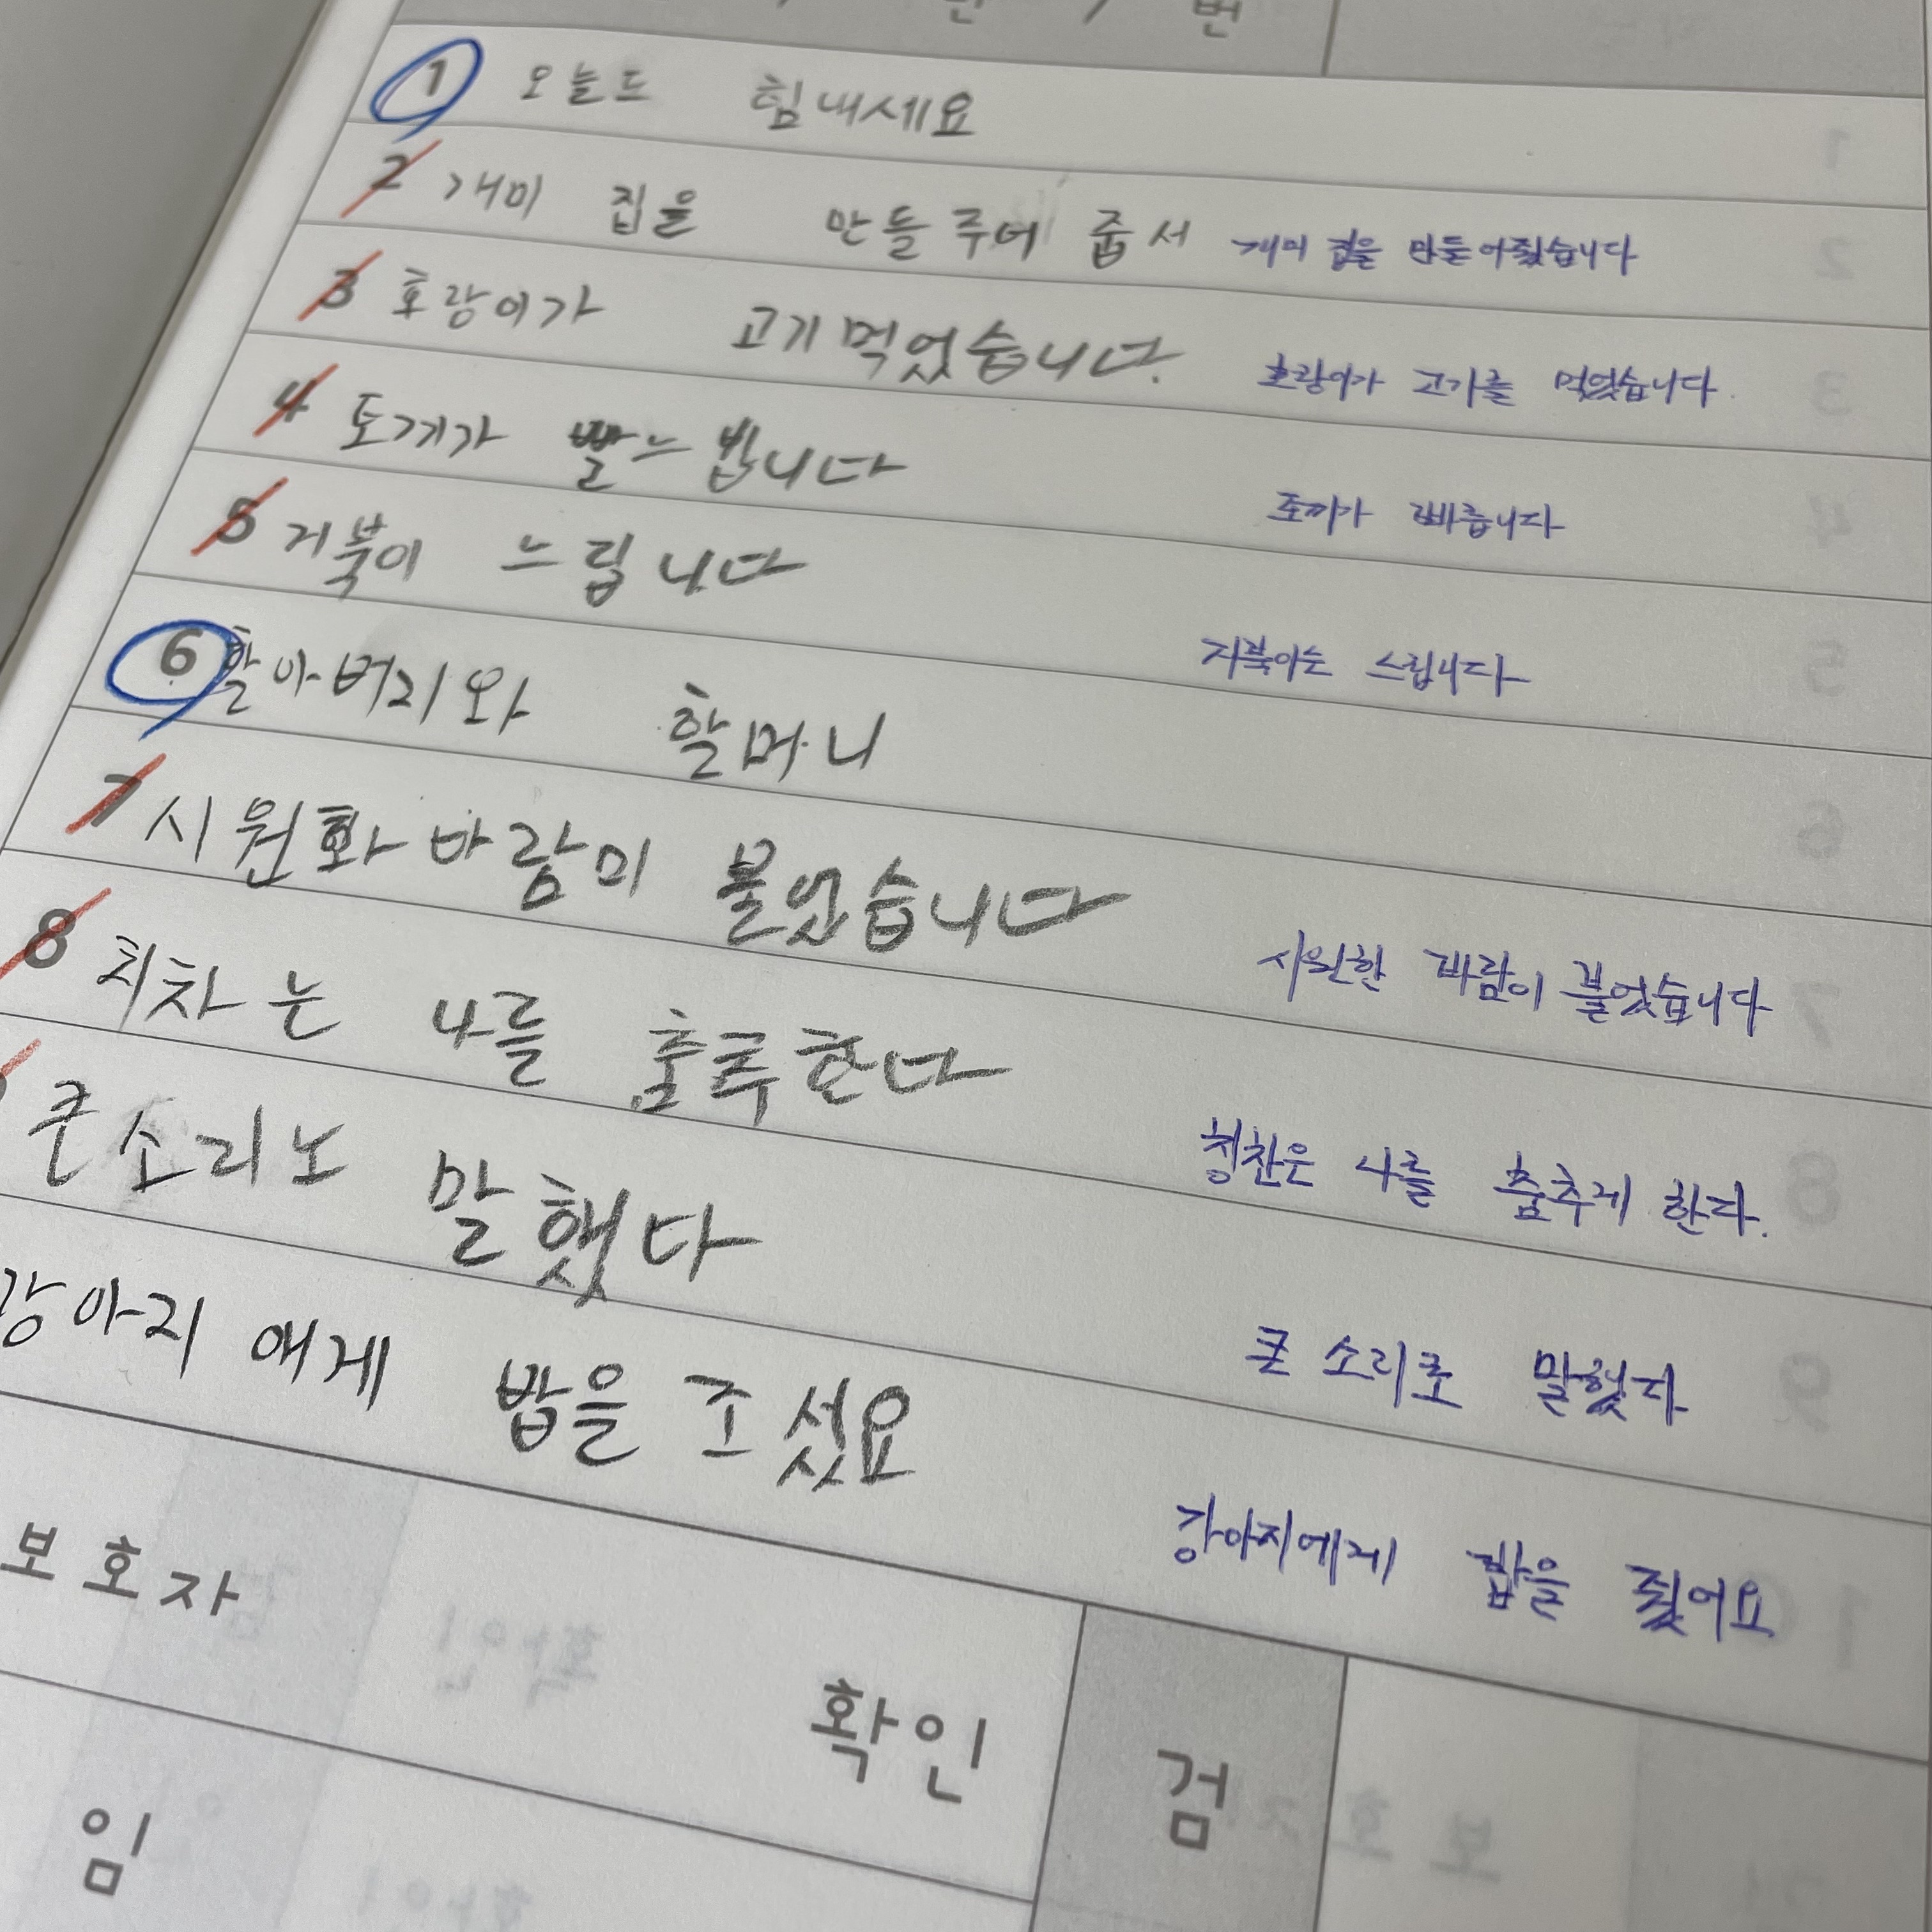 번
1 오늘도 힘내세요
2 개미 집을 만들 주어 줍서 개미 집을 만들어줬습니다
3 호랑이가 고기먹었습니다. 호랑이가 고기를 먹었습니다.
4 토끼가 빨느밥니다 토끼가 빠릅니다
5 거북이 느립니다 거북이는 느립니다
6 할아버리와 할머니
7 시원화 바람미 불었습니다 시원한 바람이 불었습니다
8 치차는 나를 춤툭한다 칭찬은 나를 춤추게 한다.
큰소리노 말했다 큰 소리로 말했다
강아리 애게 밥을 조섰요 강아지에게 밥을 줬어요
보호자 확인 검
임